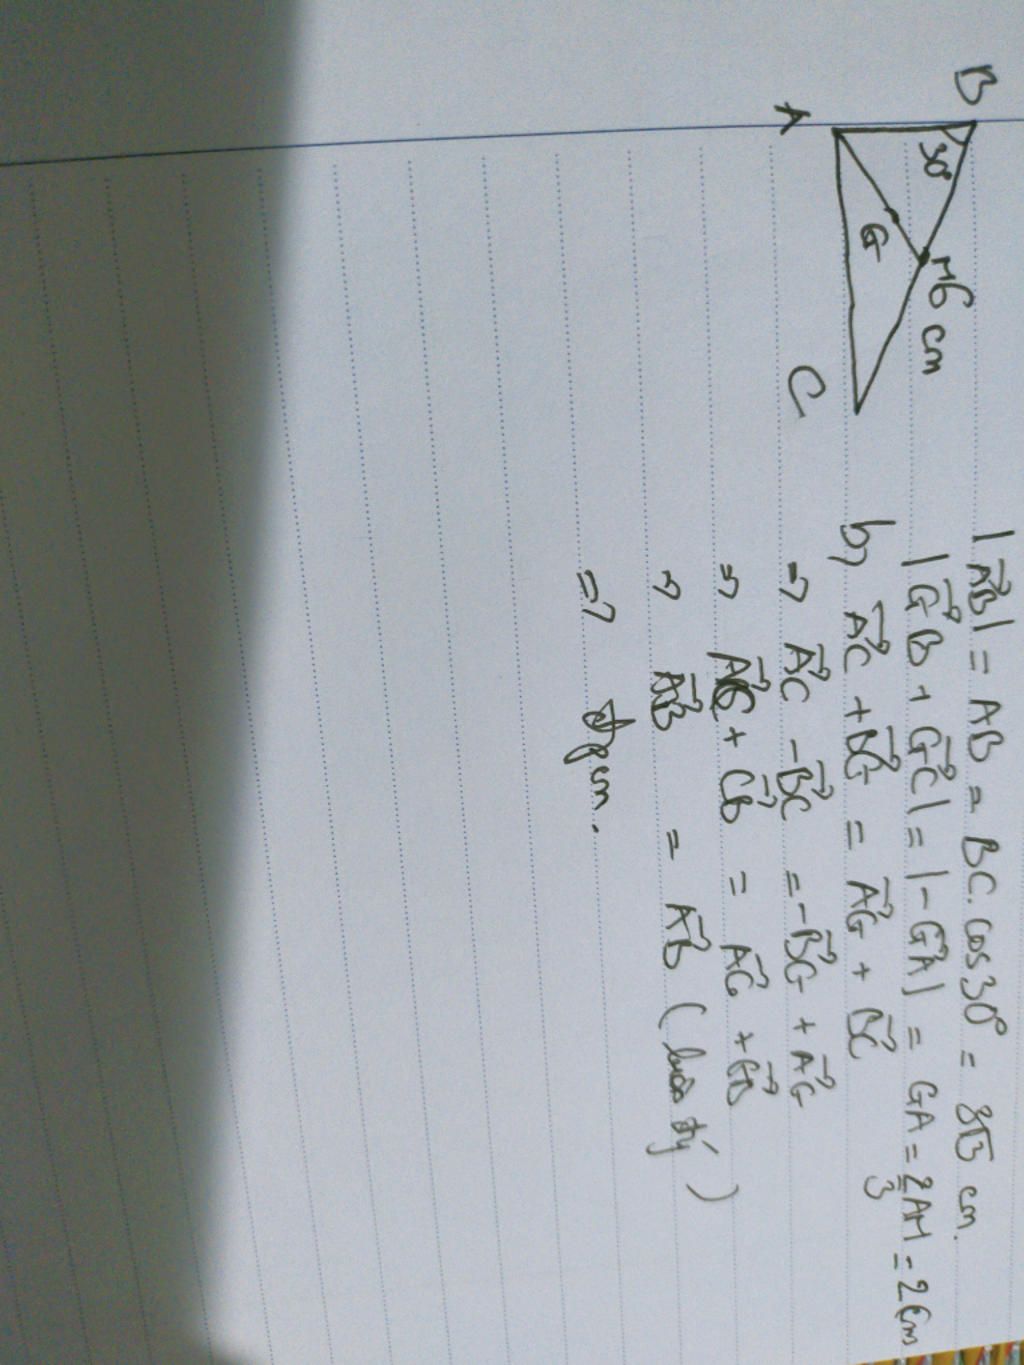 B
30°
M 6 cm
G
A
C
|AB→| = AB = BC. cos30° = 3√3 cm.
|GB→ + GC→| = |-GA→| = GA = 2/3 AM = 2cm
b, AC→ + BG→ = AG→ + BC→
=> AC→ - BC→ = -BG→ + AG→
=> AC→ + CB→ = AG→ + GB→
=> AB→ = AB→ (luôn đý)
=> đpcm.